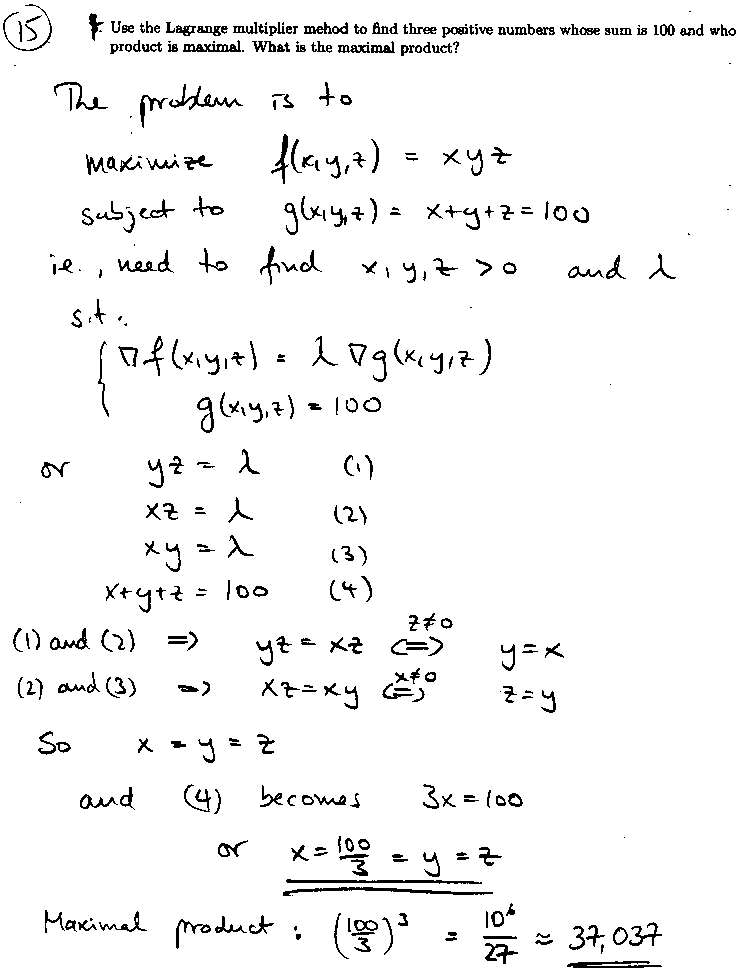 15 Use the Lagrange multiplier mehod to find three positive numbers whose sum is 100 and who
product is maximal. What is the maximal product?
The problem is to
maximize f(x,y,z) = xyz
subject to g(x,y,z) = x+y+z = 100
i.e., need to find x, y, z > 0 and λ
s.t.
∇f(x,y,z) = λ ∇g(x,y,z)
g(x,y,z) = 100
or yz = λ (1)
xz = λ (2)
xy = λ (3)
x+y+z = 100 (4)
(1) and (2) ⇒ yz = xz ⇔ z≠0 y=x
(2) and (3) ⇒ xz = xy ⇔ x≠0 z=y
So x = y = z
and (4) becomes 3x = 100
or x = 100/3 = y = z
Maximal product : (100/3)³ = 10⁶/27 ≈ 37,037